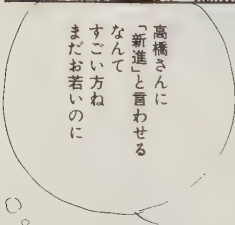 高橋さんに
「新進」と言わせる
なんて
すごい方ね
まだお若いのに